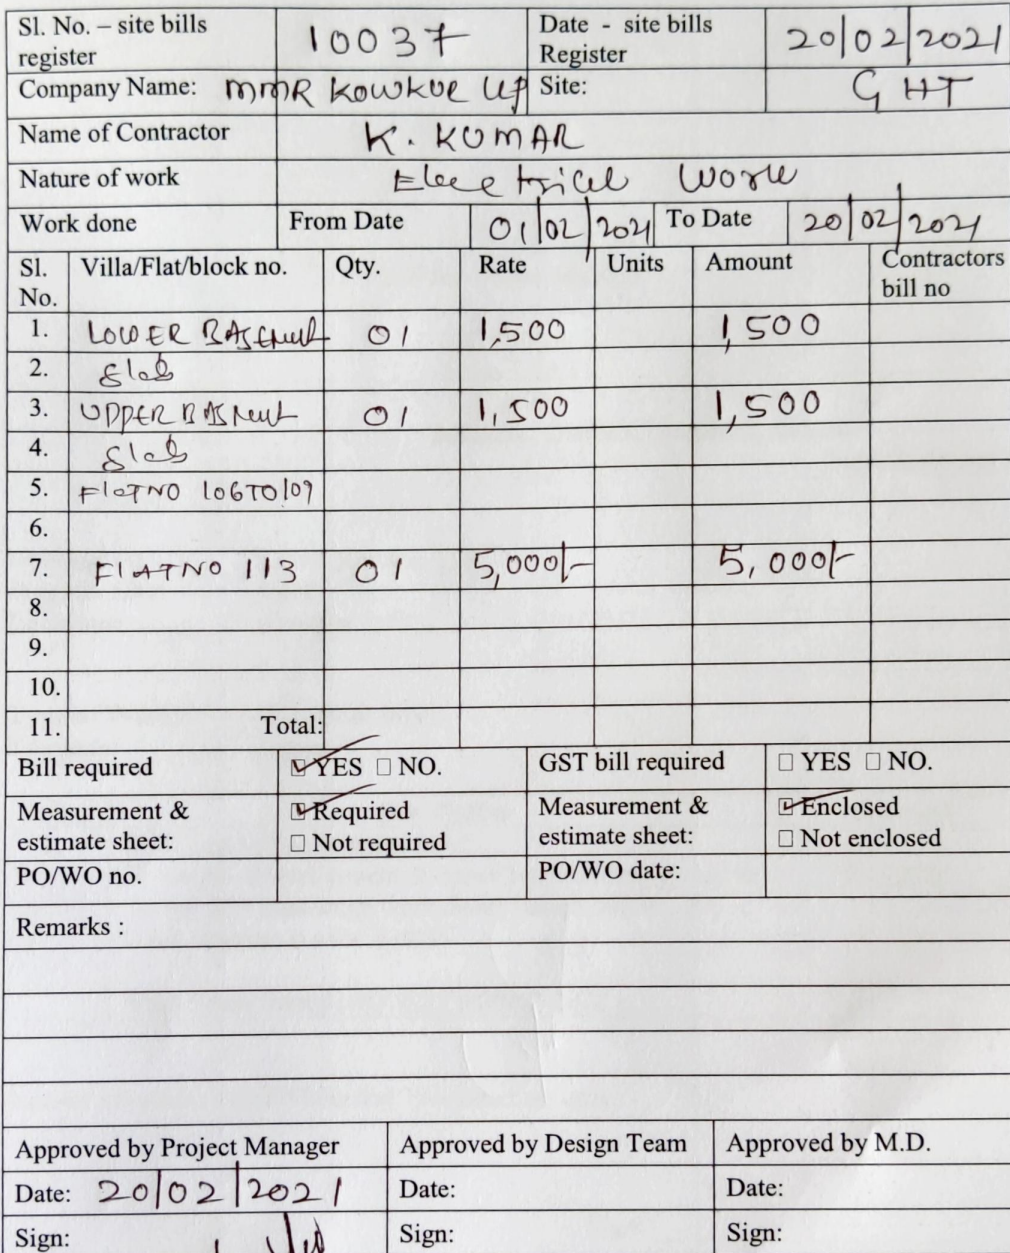 Sl. No. – site bills register 10037 Date - site bills Register 20/02/2021
Company Name: MMR KOWKUR LLP Site: GHT
Name of Contractor K. KUMAR
Nature of work Electrical Work
Work done From Date 01/02/2021 To Date 20/02/2021
Sl. No. Villa/Flat/block no. Qty. Rate Units Amount Contractors bill no
1. LOWER BASEment 01 1,500 1,500
2. Slab
3. UPPER BASment 01 1,500 1,500
4. Slab
5. FlaTNO 106TO109
6.
7. FlATNO 113 01 5,000/- 5,000/-
8.
9.
10.
11. Total:
Bill required ☑ YES □ NO. GST bill required □ YES □ NO.
Measurement & estimate sheet: ☑ Required □ Not required Measurement & estimate sheet: ☑ Enclosed □ Not enclosed
PO/WO no. PO/WO date:
Remarks :
Approved by Project Manager Approved by Design Team Approved by M.D.
Date: 20/02/2021 Date: Date:
Sign: Sign: Sign: